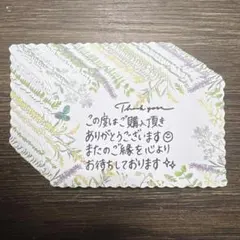 Thank you
この度はご購入頂き
ありがとうございます☺
またのご縁を心より
お待ちしております✨